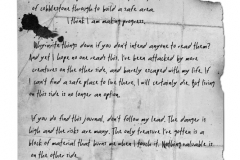 of cobblestone through to build a safe area.
I think I am making progress.
Why write things down if you don't intend anyone to read them?
And yet I hope no one reads this. I've been attacked by more
creatures on the other side, and barely escaped with my life. If
I can't find a safe place to live there, I will certainly die. But living on
this side is no longer an option.
If you do find this journal, don't follow my lead. The danger is
high and the risks are many. The only treasure I've gotten is a
block of material that burns me when I touch it. Nothing valuable is
on the other side.